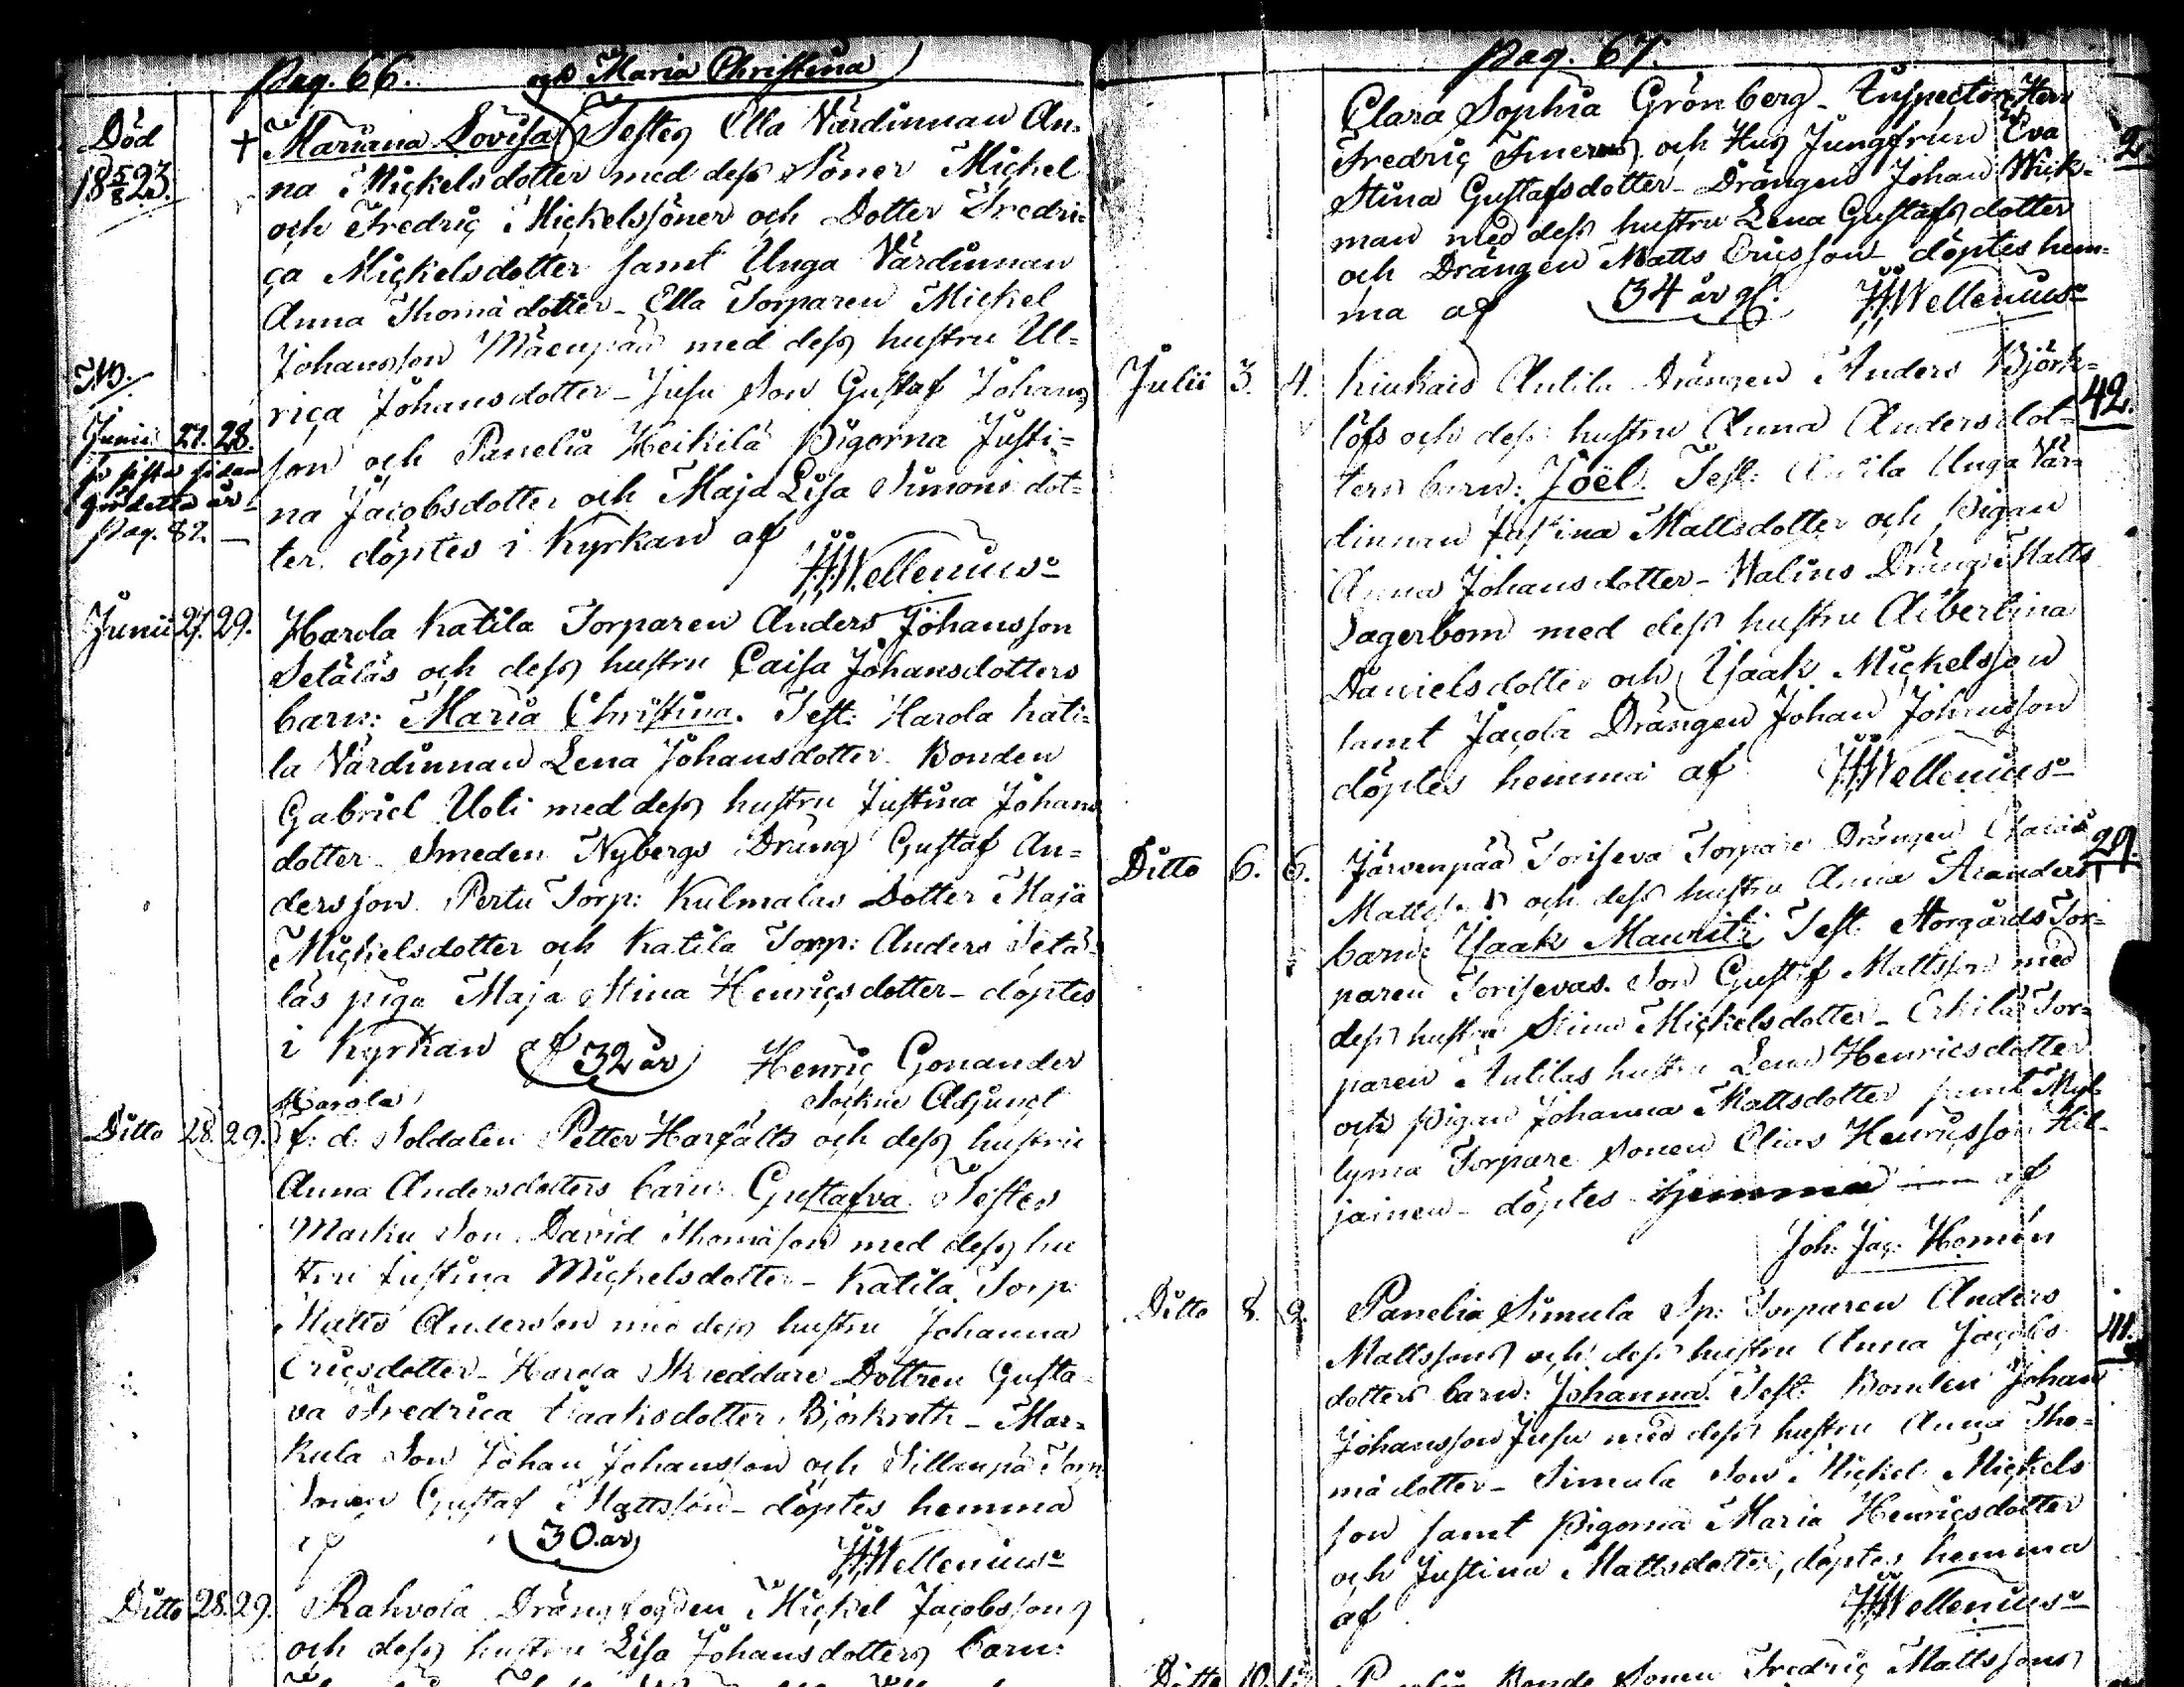 Pag. 66. och Maria Christina
Död
18 5/8 23.
† Mariana Lovisa Testes Ella Värdinnan An-
na Mickelsdotter med dess Söner Mickel
och Fredric Mickelssöner och Dotter Fredri-
ca Mickelsdotter samt Unga Värdinnan
Anna Thomä dotter - Ella Torparen Mickel
Johansson Mäenpää med dess hustru Ul-
rica Johansdotter - Jusu Son Gustaf Johans
son och Panelia Heikilä Pigorna Justi-
na Jacobsdotter och Maja Lisa Simons dot-
ter. döptes i Kyrkan af
Wellenius
NB.
Junii 27. 28.
se sista sidan
för detta år
pag. 82.
Junii 27. 29. Harola Katila Torparen Anders Johansson
Setäläs och dess hustru Caisa Johansdotters
barn: Maria Christina. Test: Harola Kati-
la Värdinnan Lena Johansdotter. Bonden
Gabriel Uoti med dess hustru Justina Johans
dotter - Smeden Nybergs Dräng Gustaf An-
dersson. Pertu Torp: Kulmalas Dotter Maja
Mickelsdotter och Katila Torp: Anders Setä-
läs piga Maja Stina Henricsdotter - döptes
i Kyrkan af 32 år Henric Gonander
Sockne Adjunct
Harola
Ditto 28. 29. f: d: Soldaten Petter Harfälts och dess hustru
Anna Andersdotters barn: Gustafva Testes
Marku Son David Thomäson med dess hu
stru Justina Mickelsdotter - Katila Torp:
Matts Andersson med dess hustru Johanna
Ericsdotter - Harola Skreddare Dottren Gusta-
va Fredrica Isaaksdotter Björkroth - Mar-
kula Son Johan Johansson och Sillanpä Torp
Sonen Gustaf Mattsson - döptes hemma
af 30 år Wellenius
Ditto 28. 29. Rahvola Drängfogden Mickel Jacobssons
och dess hustru Lisa Johansdotters barn:
Pag. 67.
Clara Sophia Grönberg - Inspectoren Herr
Fredric och Hus Jungfrun Eva
Stina Gustafsdotter - Drängen Johan Wick-
man med dess hustru Lena Gustafsdotter
och Drängen Matts Ericsson - döptes hem-
ma af 34 år gl. Wellenius
2
Julii 3. 4. Kiukais Antila Drängen Anders Björk-
löfs och dess hustru Anna Andersdot-
ters barn: Joël. Test: Antila Unga Vär-
dinnan Justina Mattsdotter och Pigan
Anna Johansdotter - Walins Dräng Matts
Lagerbom med dess hustru Albertina
Danielsdotter och Isaak Mickelsson
samt Jacola Drängen Johan Johansson
döptes hemma af Wellenius
42.
Ditto 6. 6. Järvenpää Toriseva Torpare Drängen
Mattssons och dess hustru Anna
barn: Isaak Mauritz Test. Storgårds Tor-
paren Torisevas Son Gustaf Mattsson med
dess hustru Stina Mickelsdotter - Erkilä Tor-
paren Antilas hustru Lena Henricsdotter
och Pigan Johanna Mattsdotter samt Myl-
lymä Torpare Sonen Elias Henricsson Hil-
jainen - döptes hemma af
Joh: Jac: Homén
29.
Ditto 8. 9. Panelia Simula Sp: Torparen Anders
Mattssons och dess hustru Anna Jacobs
dotters barn: Johanna. Test: Bonden Johan
Johansson Jusu med dess hustru Anna Tho-
mä dotter - Simula Son Mickel Mickels
son samt Pigorna Maria Henricsdotter
och Justina Mattsdotter, döptes hemma
af Wellenius
Ditto 10. Bonde Sonen Fredric Mattssons